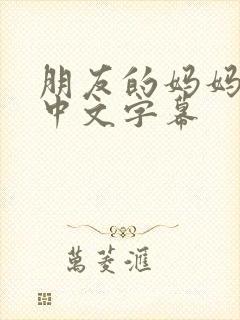 朋友的妈妈
中文字幕
萬菱滙